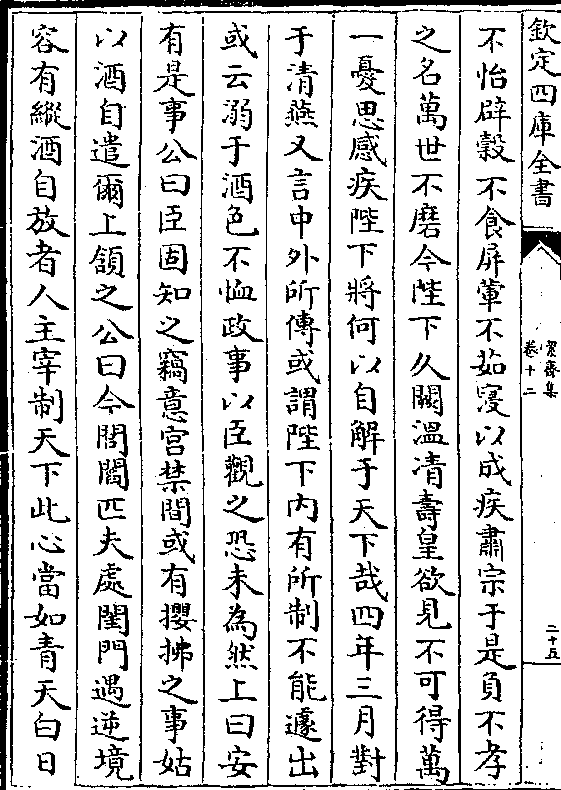 欽定四庫全書
絜齋集
卷十二
二十五
不怡辟穀不食屏葷不茹寖以成疾肅宗于是負不孝
之名萬世不磨今陛下久闕溫凊壽皇欲見不可得萬
一憂思感疾陛下將何以自解于天下哉四年三月對
于清燕又言中外所傳或謂陛下内有所制不能遽出
或云溺于酒色不恤政事以臣觀之恐未為然上曰安
有是事公曰臣固知之竊意宫禁間或有攖拂之事姑
以酒自遣爾上頷之公曰今閭閻匹夫處閨門遇逆境
容有縱酒自放者人主宰制天下此心當如青天白日